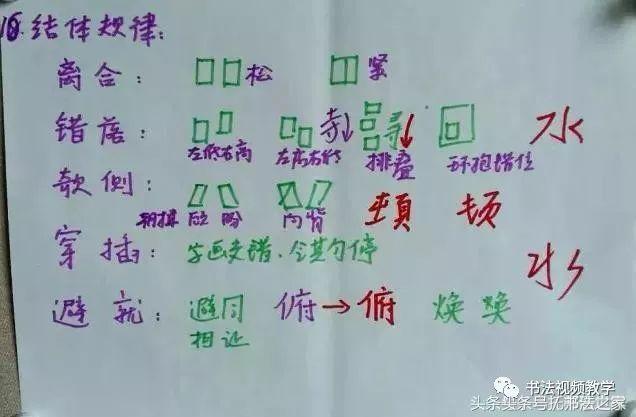 10.结体规律:
离合: 松 紧
错落: 寺↓ 寻↓ 水
左低右高 左高右低 排叠 环抱错位
欹侧: 頓 顿
相揖 应 盼 向背
穿插: 字画交错、令其匀停
水乡
避就: 避同 俯→俯 焕 奂
相让
书法视频教学
头条头条号抚邪法之家